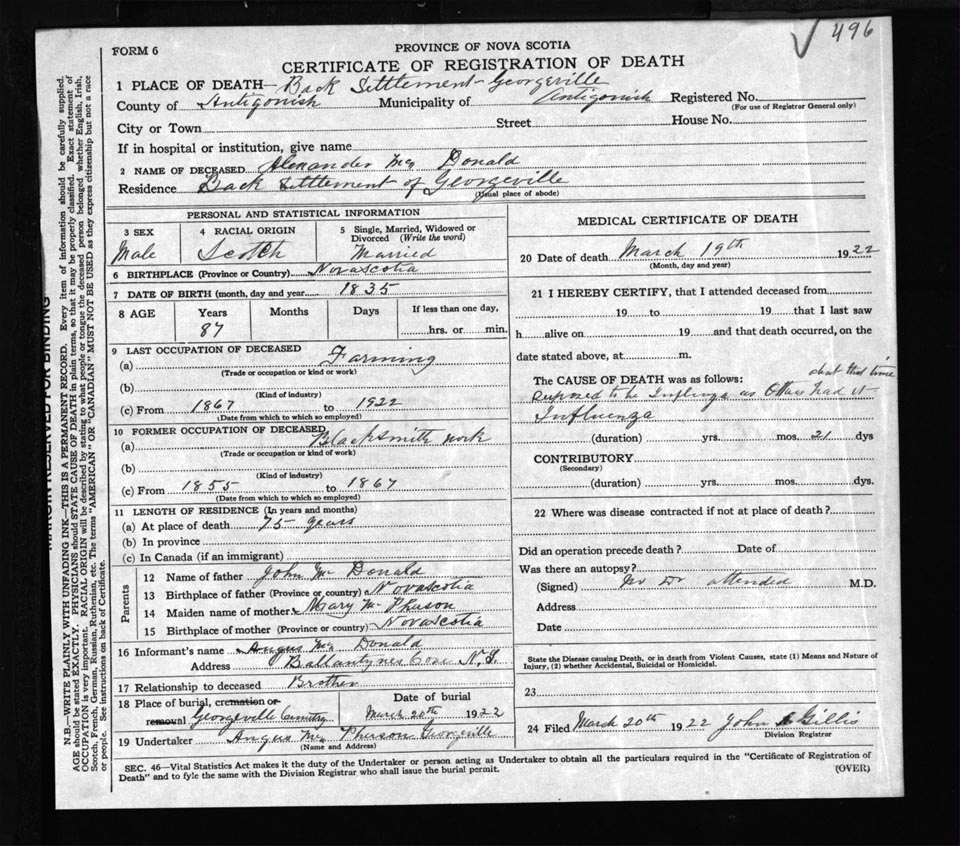 496
FORM 6
PROVINCE OF NOVA SCOTIA
CERTIFICATE OF REGISTRATION OF DEATH
1 PLACE OF DEATH— Back Settlement - Georgeville
County of Antigonish Municipality of Antigonish Registered No.
(For use of Registrar General only)
City or Town Street House No.
If in hospital or institution, give name
2 NAME OF DECEASED Alexander Mc Donald
Residence Back Settlement of Georgeville
(Usual place of abode)
PERSONAL AND STATISTICAL INFORMATION
3 SEX 4 RACIAL ORIGIN 5 Single, Married, Widowed or
Divorced (Write the word)
Male Scotch Married
6 BIRTHPLACE (Province or Country) Novascotia
7 DATE OF BIRTH (month, day and year 1835
8 AGE Years Months Days If less than one day,
87 hrs. or min.
9 LAST OCCUPATION OF DECEASED
(a) Farming
(Trade or occupation or kind or work)
(b)
(Kind of industry)
(c) From 1867 to 1922
(Date from which to which so employed)
10 FORMER OCCUPATION OF DECEASED
(a) Blacksmith work
(Trade or occupation or kind of work)
(b)
(Kind of industry)
(c) From 1855 to 1867
(Date from which to which so employed)
11 LENGTH OF RESIDENCE (In years and months)
(a) At place of death 75 years
(b) In province
(c) In Canada (if an immigrant)
Parents
12 Name of father John Mc Donald
13 Birthplace of father (Province or country) Novascotia
14 Maiden name of mother Mary Mc Pherson
15 Birthplace of mother (Province or country) Novascotia
16 Informant's name Angus Mc Donald
Address Ballantynes Cove N.S.
17 Relationship to deceased Brother
18 Place of burial, cremation or
removal Georgeville Cemetry
Date of burial
March 20th 1922
19 Undertaker Angus Mc Pherson Georgeville
(Name and Address)
MEDICAL CERTIFICATE OF DEATH
20 Date of death March 19th 1922
(Month, day and year)
21 I HEREBY CERTIFY, that I attended deceased from
19 to 19 that I last saw
h alive on 19 and that death occurred, on the
date stated above, at m.
The CAUSE OF DEATH was as follows: about that time
Suposed to be Influenza as Others had it
Influenza
(duration) yrs. mos. 21 dys
CONTRIBUTORY
(Secondary)
(duration) yrs. mos. dys.
22 Where was disease contracted if not at place of death?
Did an operation precede death? Date of
Was there an autopsy?
(Signed) No Dr attended M.D.
Address
Date
State the Disease causing Death, or in death from Violent Causes, state (1) Means and Nature of
Injury, (2) whether Accidental, Suicidal or Homicidal.
23
24 Filed March 20th 1922 John Gillis
Division Registrar
SEC. 46—Vital Statistics Act makes it the duty of the Undertaker or person acting as Undertaker to obtain all the particulars required in the "Certificate of Registration of
Death" and to fyle the same with the Division Registrar who shall issue the burial permit.
(OVER)
MARGIN RESERVED FOR BINDING
N.B.—WRITE PLAINLY WITH UNFADING INK—THIS IS A PERMANENT RECORD. Every item of information should be carefully supplied.
AGE should be stated EXACTLY. PHYSICIANS should STATE CAUSE OF DEATH in plain terms, so that it may be properly classified. Exact statement of
OCCUPATION is very important. RACIAL ORIGIN will be described by stating to what people or tongue the deceased person belonged whether English, Irish,
Scotch, French, German, Russian, Ruthenian, etc. The terms "AMERICAN" OR "CANADIAN" MUST NOT BE USED as they express citizenship but not a race
or people. See instructions on back of Certificate.